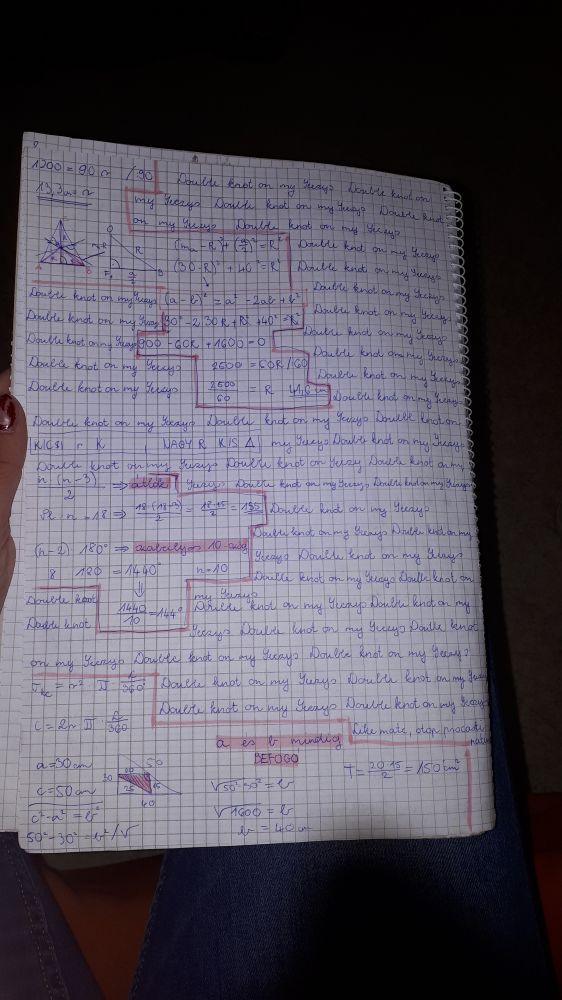 1200 = 90 r /90 Double knot on my Yeezys Double knot on
13,3m = r my Yeezys Double knot on my Yeezys Double knot
on my Yeezys Double knot on my Yeezys
R (m - R)² + (a/2)² = R² Double knot on my Yeezys
(30 - R)² + 40² = R² Double knot on my Yeezys
Double knot on my Yeezys (a - b)² = a² - 2ab + b² Double knot on my Yeezys
Double knot on my Yeezys 30² - 2 · 30R + R² + 40² = R² Double knot on my Yeezys
Double knot on my Yeezys 900 - 60R + 1600 = 0 Double knot on my Yeezys
Double knot on my Yeezys 2500 = 60R /60 Double knot on my Yeezys
Double knot on my Yeezys 2500/60 = R Double knot on my Yeezys
Double knot on my Yeezys Double knot on my Yeezys Double knot on
KICSI r K NAGY R KIS Δ my Yeezys Double knot on my Yeezys
Double knot on my Yeezys Double knot on my Yeezy Double knot on my
n (n-3)/2 ⇒ átlók Yeezys Double knot on my Yeezys Double knot on my Yeezys
Pl: n = 18 ⇒ 18·(18-3)/2 = 18·15/2 = 135 Double knot on my Yeezys
Double knot on my Yeezys Double knot on my
(n-2) · 180° ⇒ szabályos 10-szög Yeezys Double knot on my Yeezys
8 · 180 = 1440° n=10 Double knot on my Yeezys Double knot on
my Yeezys
Double knot 1440/10 = 144° Double knot on my Yeezys Double knot on my
Double knot Yeezys Double knot on my Yeezys Double knot
on my Yeezys Double knot on my Yeezys Double knot on my Yeezys
= r² · π · /360° Double knot on my Yeezys Double knot on my Yeezys
Double knot on my Yeezys Double knot on my Yeezys
i = 2r π · /360
a és b mindig
BEFOGÓ
a = 30 cm 50 T = 20·15/2 = 150 cm²
c = 50 cm 30 20 15 25 40 √50²-30² = b
c² - a² = b² √1600 = b
50² - 30² = b² /√ b = 40 cm